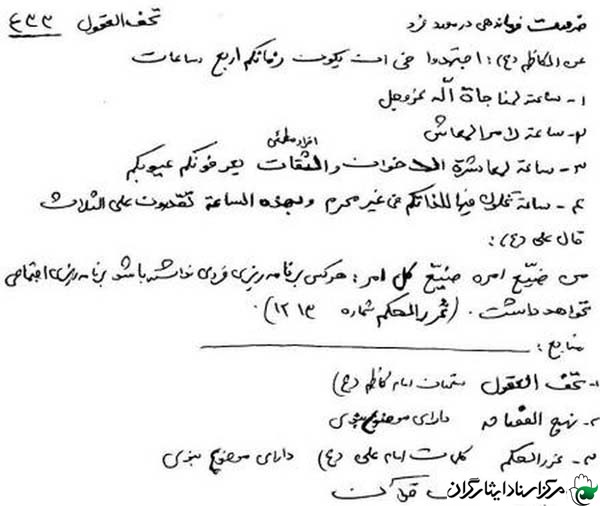 ضرورت فرماندهی در مورد فرد تحف العقول ۴۳۳
عن الکاظم (ع): اجتهدوا فی ان یکون زمانکم اربع ساعات
۱- ساعة لمناجاة الله عزوجل
۲- ساعة لامر المعاش
افراد مطمئن
۳- ساعة لمعاشرة الاخوان والثقات یعرفونکم عیوبکم
۴- ساعة تخلون فیها للذاتکم فی غیر محرم وبهذه الساعة تقدرون علی الثلاث
قال علی (ع):
من ضیّع امره ضیّع کل امر: هرکس برنامه ریزی فردی نداشته باشد برنامه ریزی اجتماعی
نخواهد داشت. (غرر الحکم شماره ۱۲۱۳).
منابع:
۱- تحف العقول سخنان امام کاظم (ع)
۲- نهج الفصاحه دارای موضوع بندی
۳- غرر الحکم کلمات امام علی (ع) دارای موضوع بندی
مرکز اسناد ایثارگران